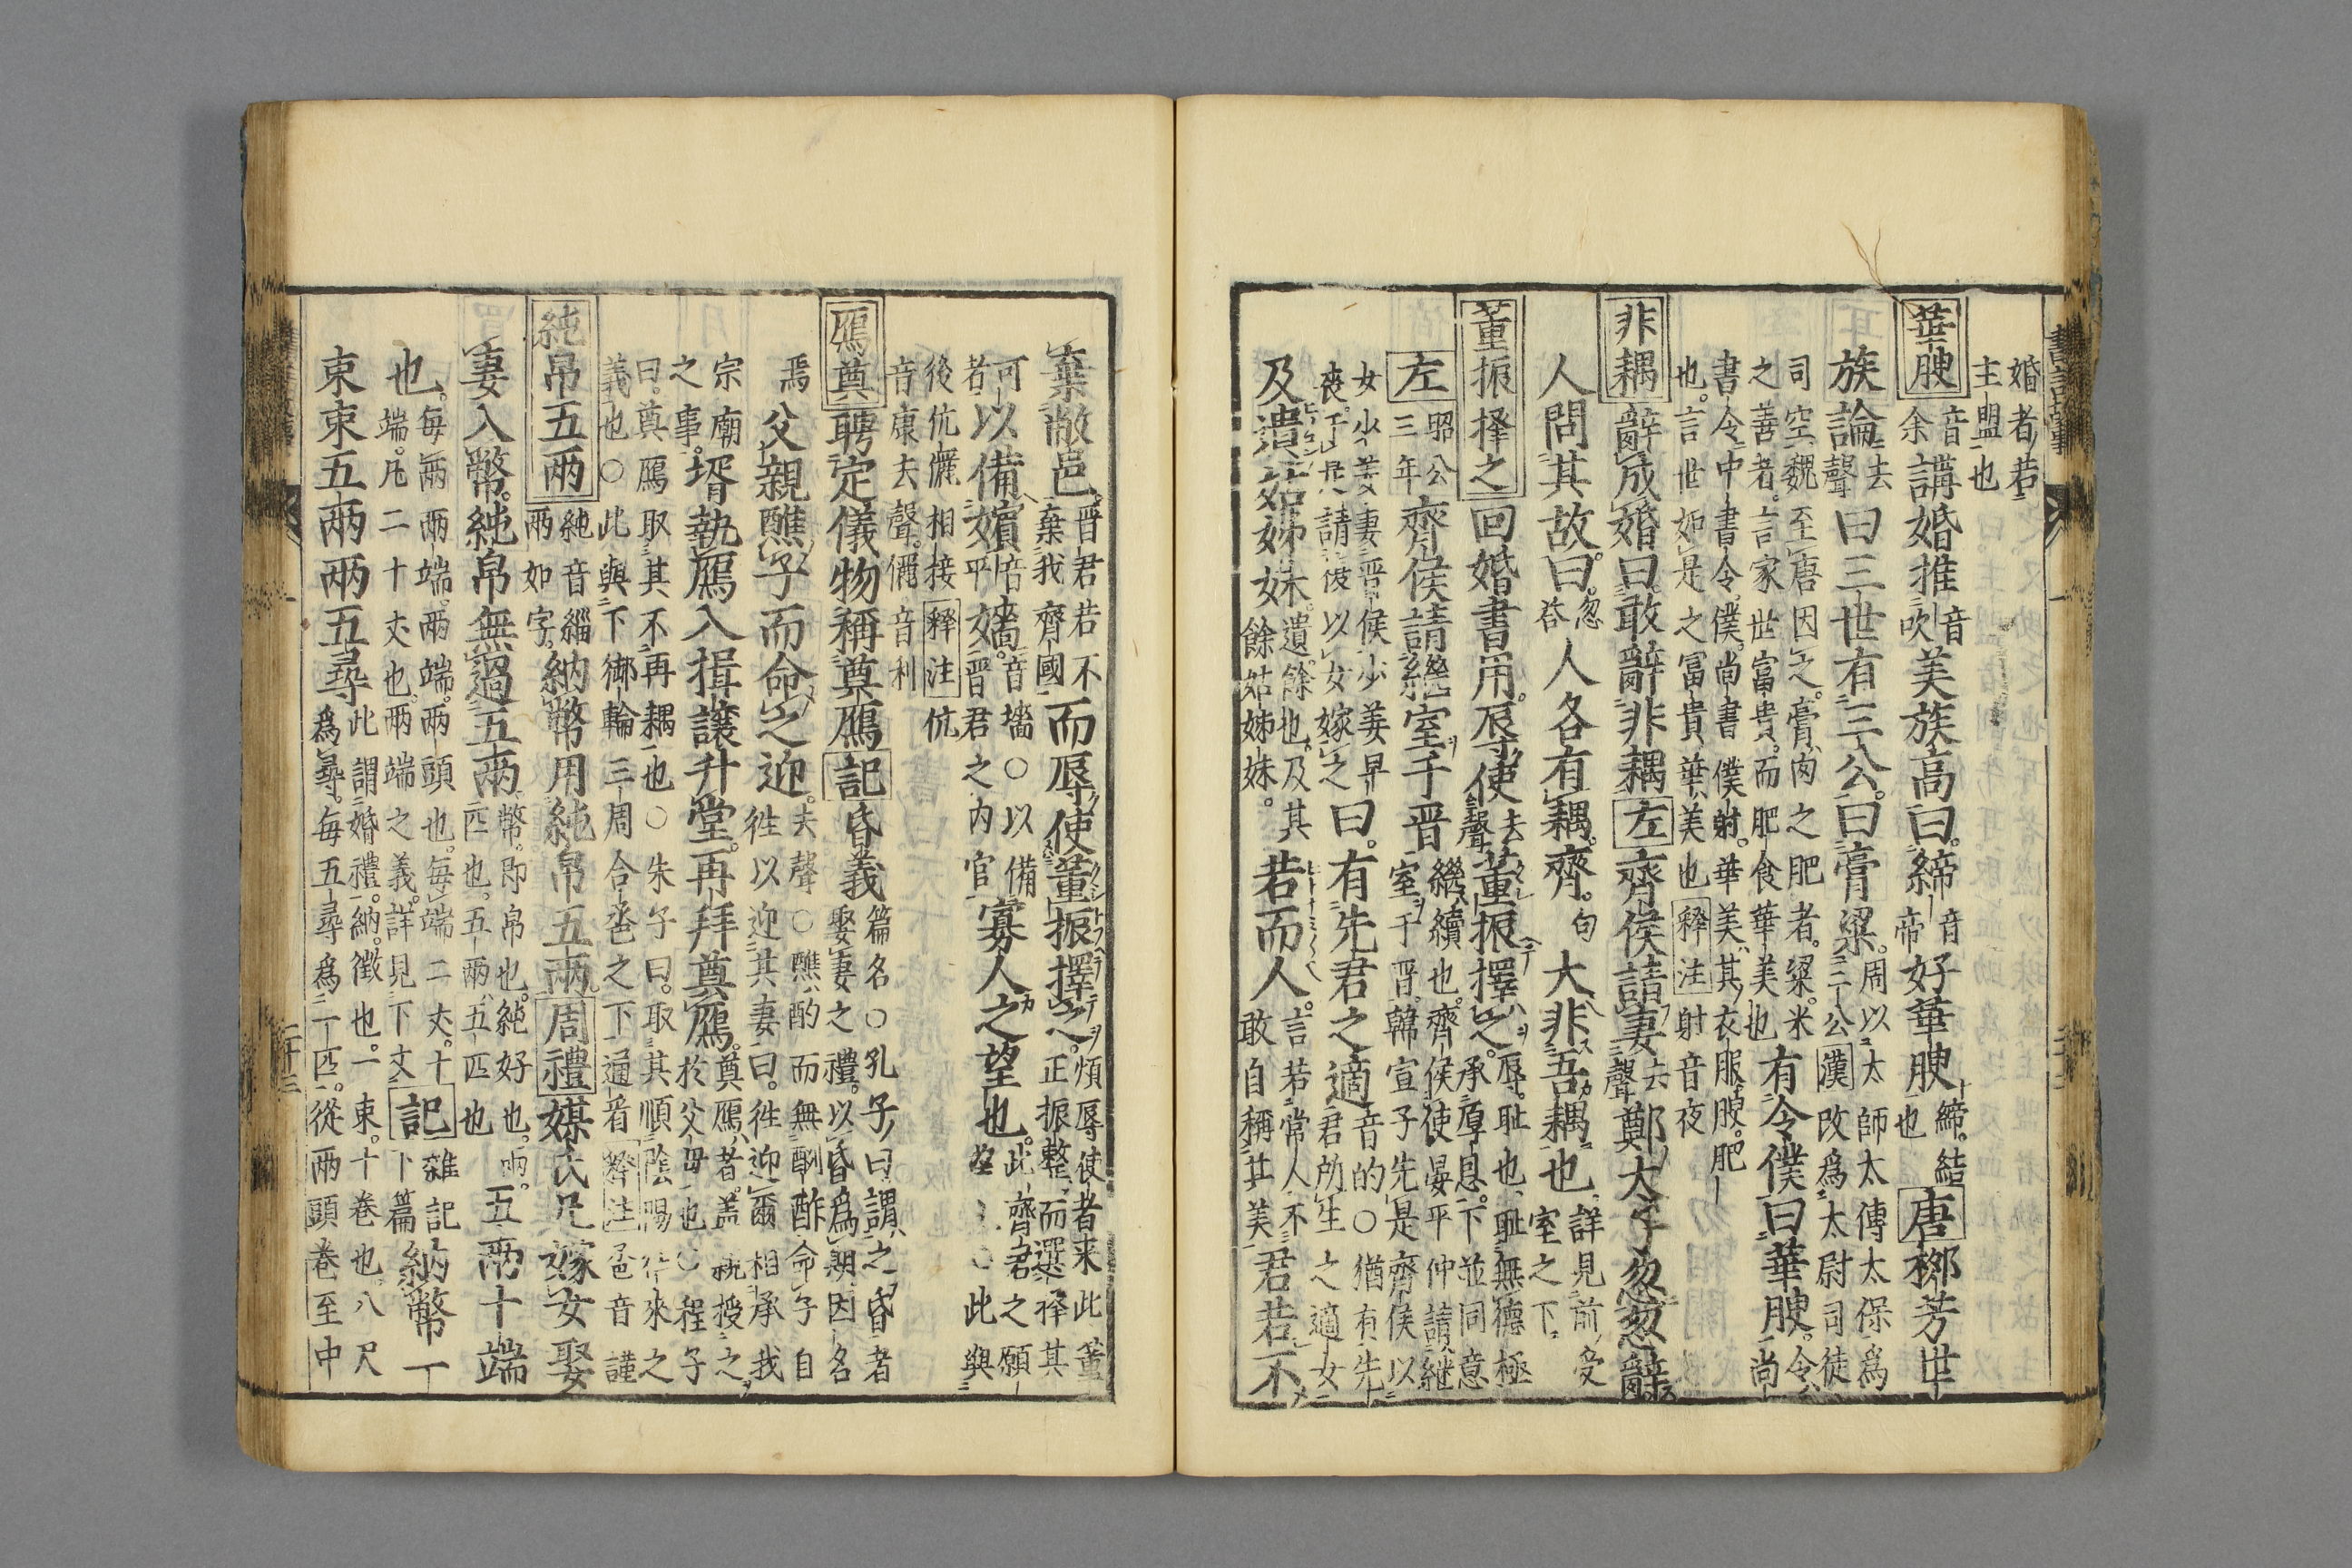 婚者若
主盟也
華腴音余講婚推音吹美族高曰締音帝好華腴締結也唐柳芳世
族論去聲曰三世有三公曰膏粱周以太師太傅太保爲三公漢改爲太尉司徒
司空魏至唐因之膏肉之肥者粱米
之善者言家世富貴而肥食華美也有令僕曰華腴令尚
書令中書令僕尚書僕射華美其衣服腴肥
也言世如是之富貴華美也釋注射音夜
非耦辭成婚曰敢辭非耦左齊侯請妻去聲鄭大子忽忽辭
人問其故曰忽答人各有耦齊句大非吾耦也詳見前受室之下
董振擇之回婚書用辱使去聲董振擇之辱耻也耻無德極承厚恩下並同意
左昭公三年齊侯請繼室于晋繼續也齊侯使晏平仲請継室于晋韓宣子先是齊侯以
女少姜妻晋侯少姜早
喪于是請彼以女嫁之曰有先君之適音的○猶有先君所生之適女
及遺姑姊妹遺餘也及其餘姑姊妹若而人言若常人不敢自稱其美君若不
棄敝邑晋君若不棄我齊國而辱使董振擇之煩辱使者来此董正振整而選擇其
可者以備嬪音平嬙音墻○以備晋君之内官寡人之望也此齊君之願○此與
後伉儷相接釋注伉
音康去聲儷音利
鴈奠聘定儀物稱奠鴈記昏義篇名○孔子曰謂之昏者娶妻之禮以昏爲期因名
焉父親醮子而命之迎去聲○醮酌而無酬酢命子自徃以迎其妻曰徃迎爾相承我
宗廟之事壻執鴈入揖讓升堂再拜奠鴈奠鴈者盖親授之於父母也○程子
曰奠鴈取其不再耦也○朱子曰取其順陰陽徃來之
義也○此與下御輪三周合卺之下通看釋注卺音謹
純帛五兩純音緇兩如字納幣用純帛五兩周禮媒氏凡嫁女娶
妻入幣純帛無過五兩幣即帛也純好也兩匹也五兩五匹也五兩十端
也每兩兩端兩端兩頭也每端二丈十端凡二十丈也兩端之義詳見下文記雜記下篇納幣一
束束五兩兩五尋此謂婚禮納徵也一束十卷也八尺爲尋每五尋爲一匹從兩頭卷至中